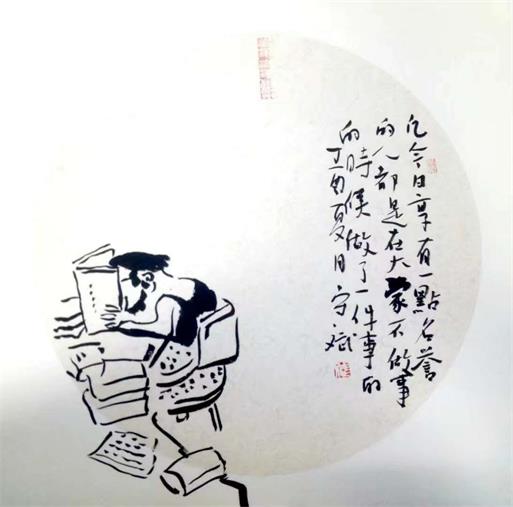 凡今日享有一點名譽
的人都是在大家不做事
的時候做了一件事的
丁酉夏月守斌